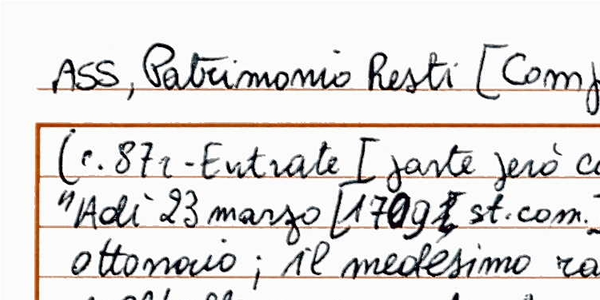 ASS, Patrimonio Resti [Comp
(c. 87r - Entrate [parte però co
"Adì 23 marzo [1709 st. com.]
ottonaio; il medesimo ra